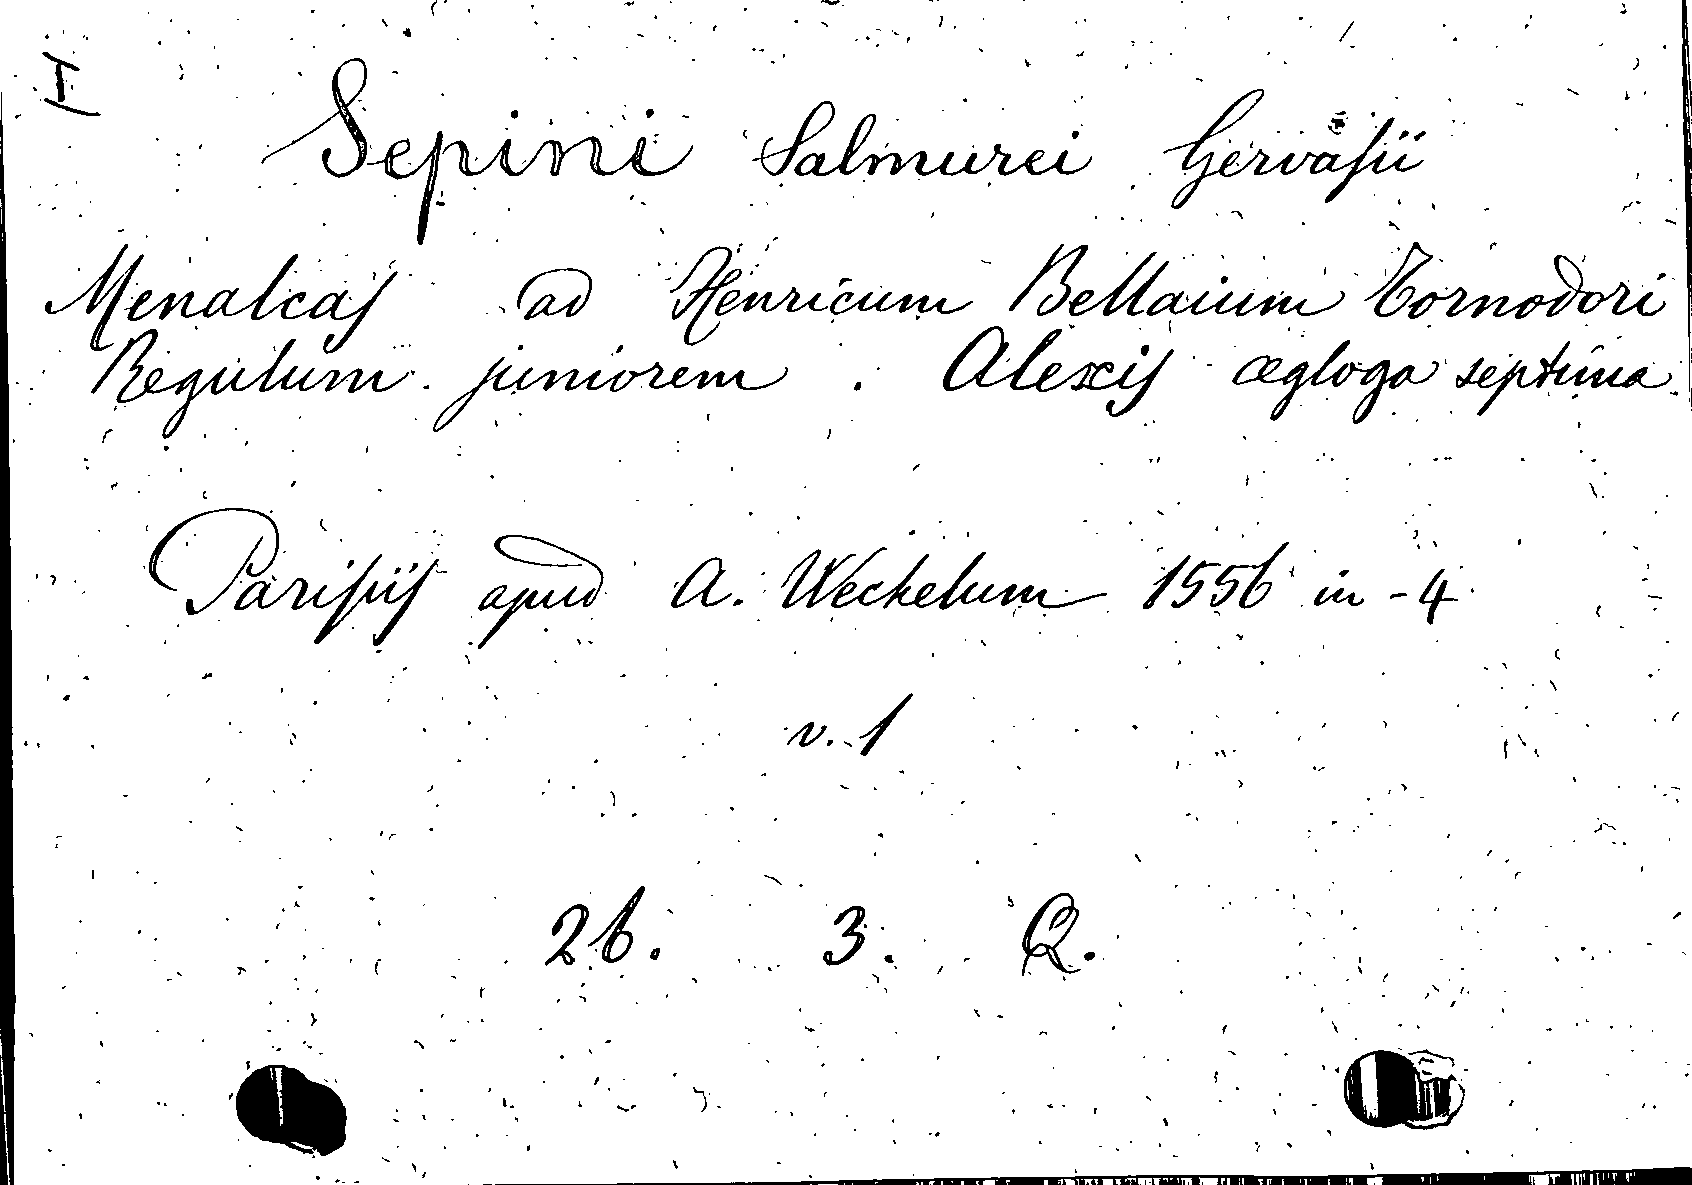 I
Sepini Salmurei Gervasii
Menalcas ad Henricum Bellaium Tornodori
Regulum juniorem. Alexis æglogа septima
Parisiis apud A. Weckelum 1556 in-4
v. 1
26. 3. Q.